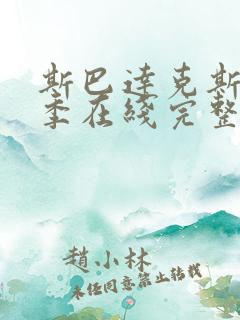 斯巴达克斯
季在线完整
赵小林
未经同意禁止转载